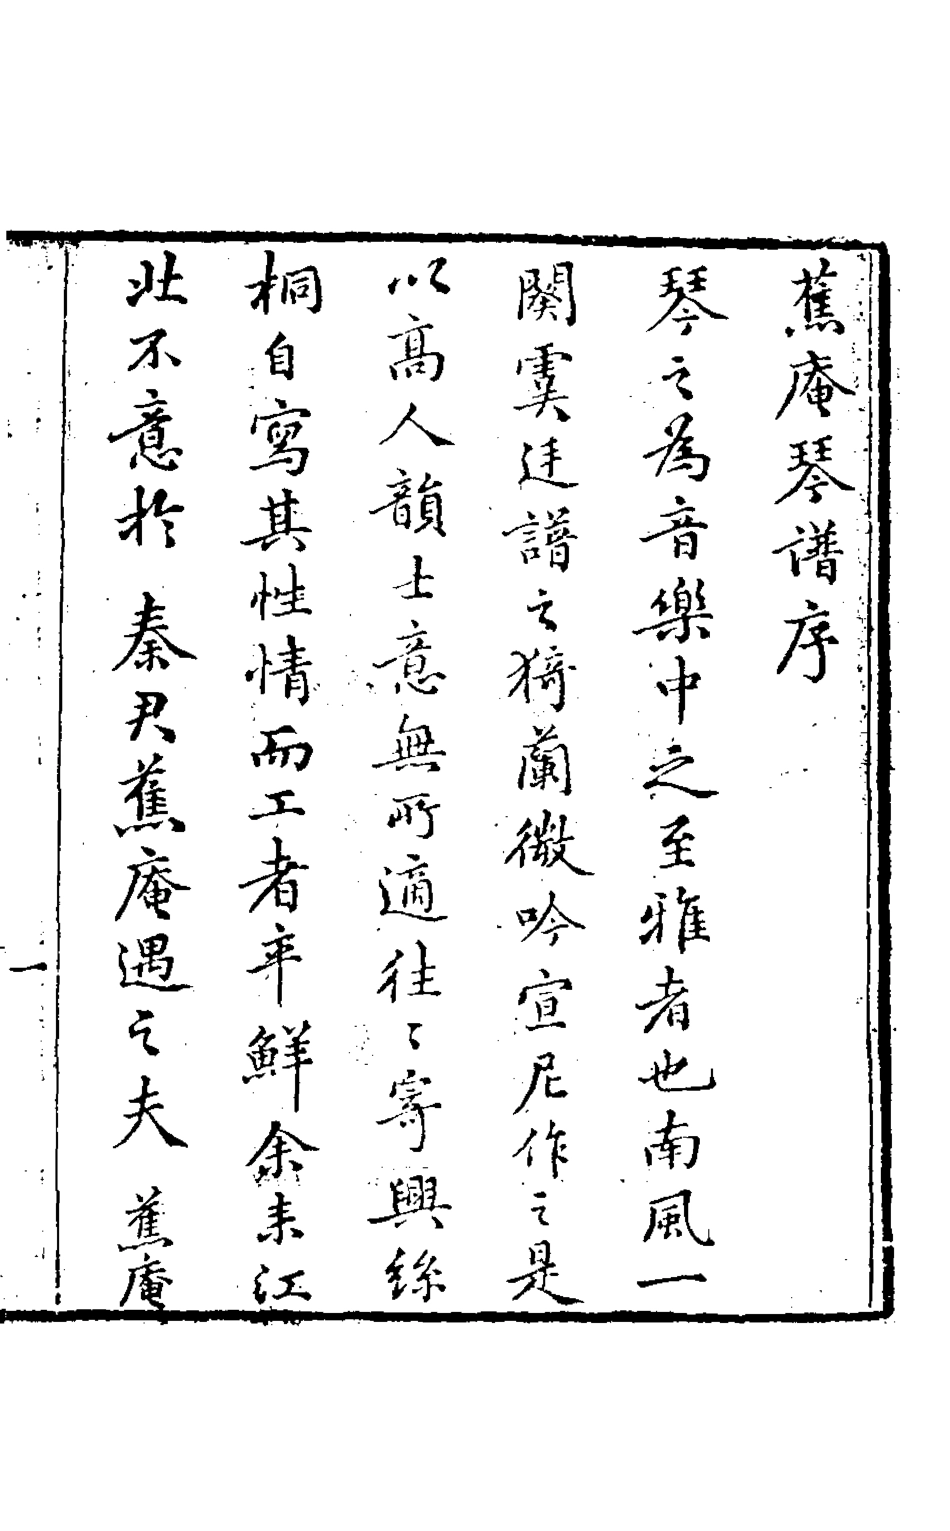 蕉庵琴譜序
琴之為音樂中之至雅者也南風一
闋虞廷譜之猗蘭微吟宣尼作之是
以高人韻士意無所適往〻寄興絲
桐自寫其性情而工者率鮮余来江
北不意於 秦君蕉庵遇之夫 蕉庵
一